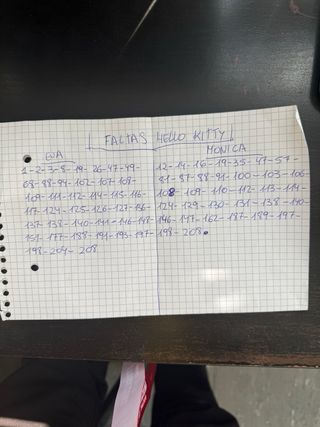 FALTAS HELLO KITTY
EVA
1-2-3-8-19-26-47-49-
68-88-94-102-107-108-
109-111-112-114-115-116-
117-124-125-126-127-136-
137-138-140-141-146-148-
151-177-188-191-193-197-
198-204-208
MONICA
12-14-16-19-35-47-57-
81-87-88-91-100-103-106-
108-109-110-112-113-114-
124-129-130-131-138-140-
146-147-162-187-189-197-
198-208.